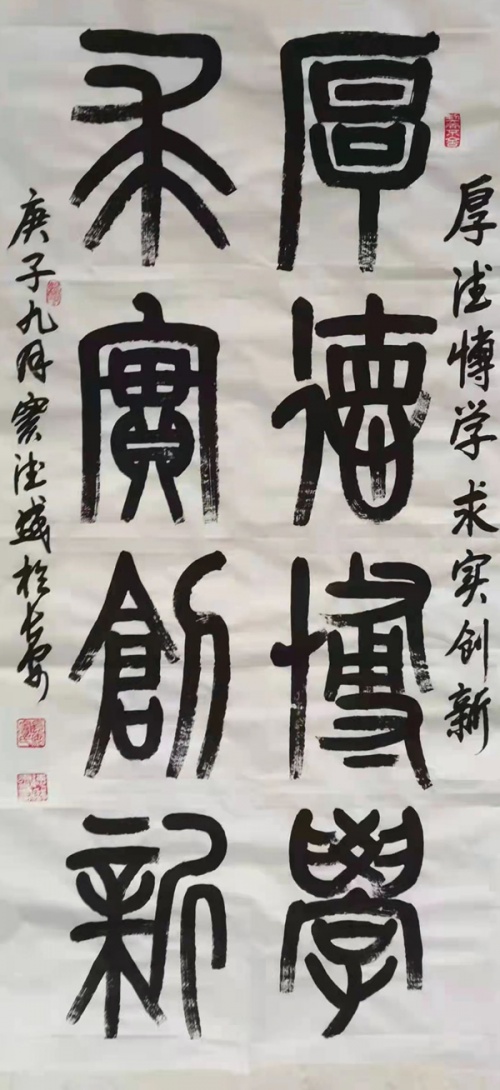 厚德博学求实创新
厚德博學
求實創新
庚子九月德盛於长安